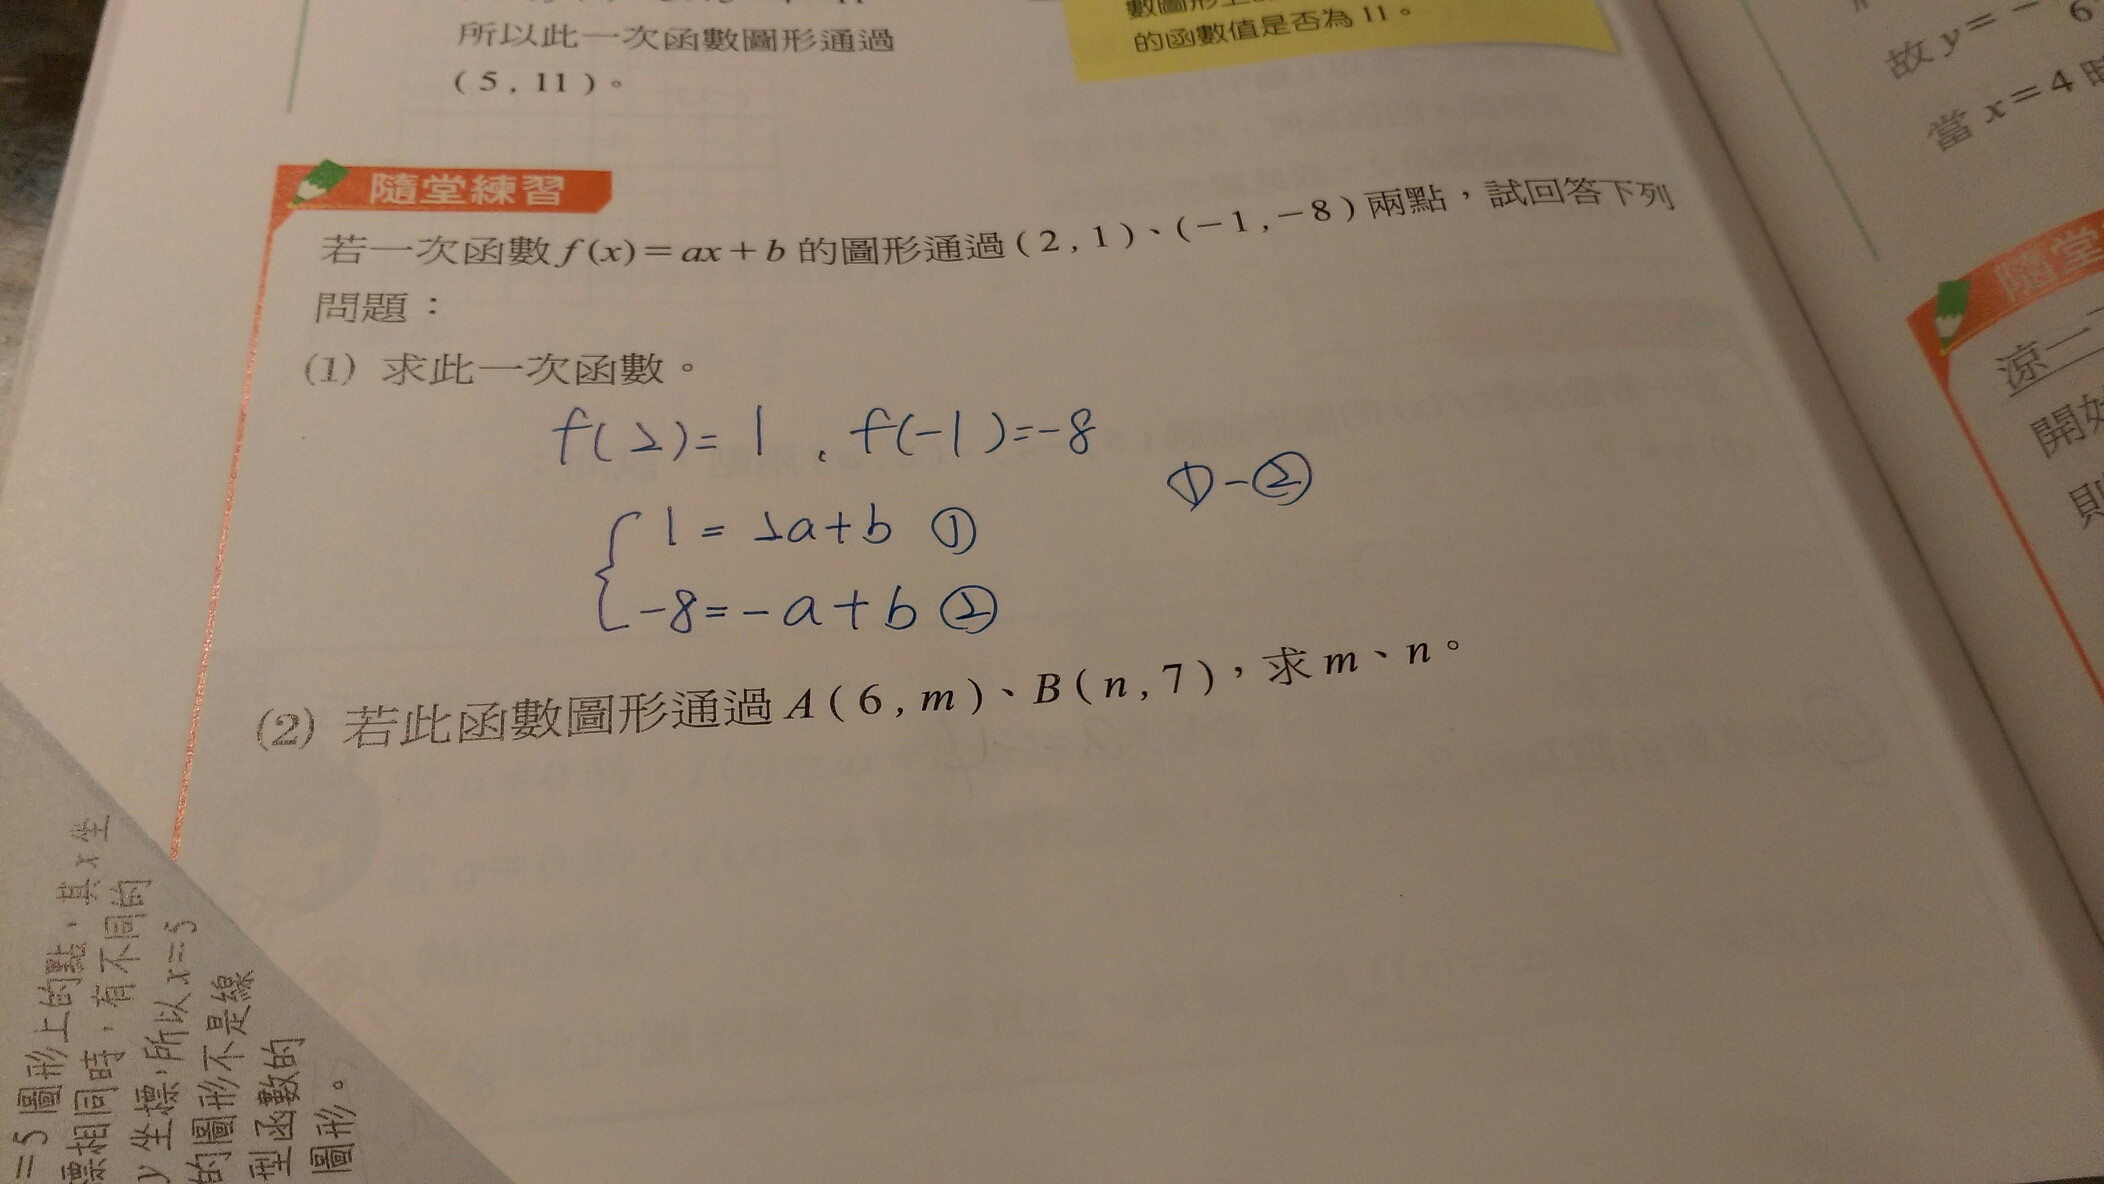 所以此一次函數圖形通過
( 5 , 11 )。
的函數值是否為 11。
隨堂練習
若一次函數 f (x)=ax+b 的圖形通過 ( 2 , 1 )、( −1 , −8 ) 兩點,試回答下列
問題:
(1) 求此一次函數。
f(2)=1、f(-1)=-8
①-②
1=2a+b ①
-8=-a+b ②
(2) 若此函數圖形通過 A ( 6 , m )、B ( n , 7 ),求 m、n。
=5 圖形上的點,其 x 坐
標相同時,有不同的
y 坐標,所以 x=5
的圖形不是線
型函數的
圖形。
故 y=−
當 x=4 時
隨堂
涼一
開始
則